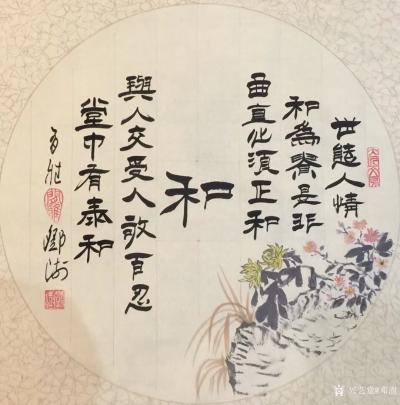 世態人情
和為貴是非
曲直必須正和
和
與人交受人敬百忍
堂中有泰和